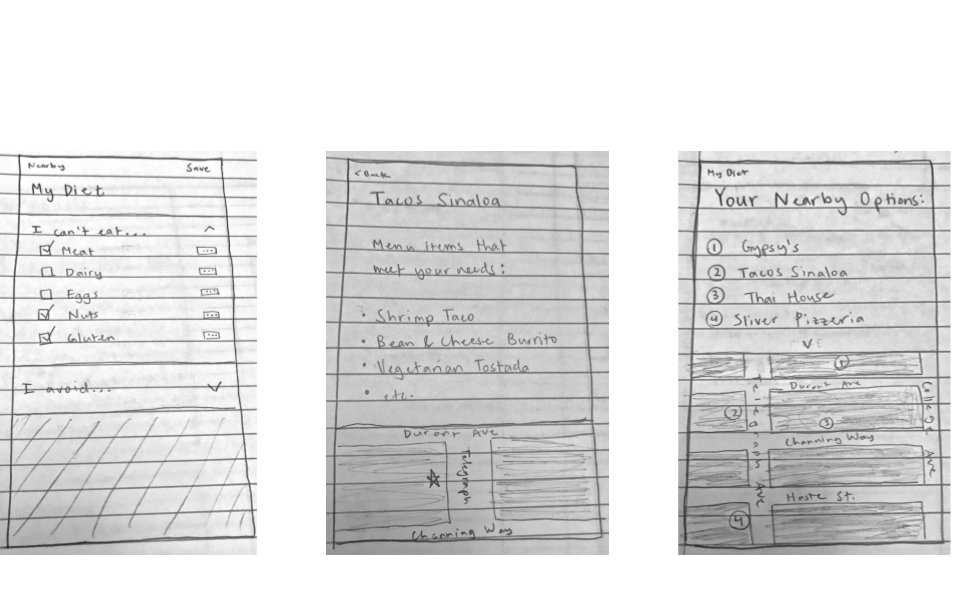 Nearby
Save
My Diet
I can't eat...
Meat
Dairy
Eggs
Nuts
Gluten
I avoid...
< Back
Tacos Sinaloa
Menu items that
meet your needs:
• Shrimp Taco
• Bean & Cheese Burrito
• Vegetarian Tostada
• etc.
Durant Ave
Telegraph
Channing Way
My Diet
Your Nearby Options:
1 Gypsy's
2 Tacos Sinaloa
3 Thai House
4 Sliver Pizzeria
1
Durant Ave
2
3
Telegraph Ave
College Ave
Channing Way
Haste St.
4